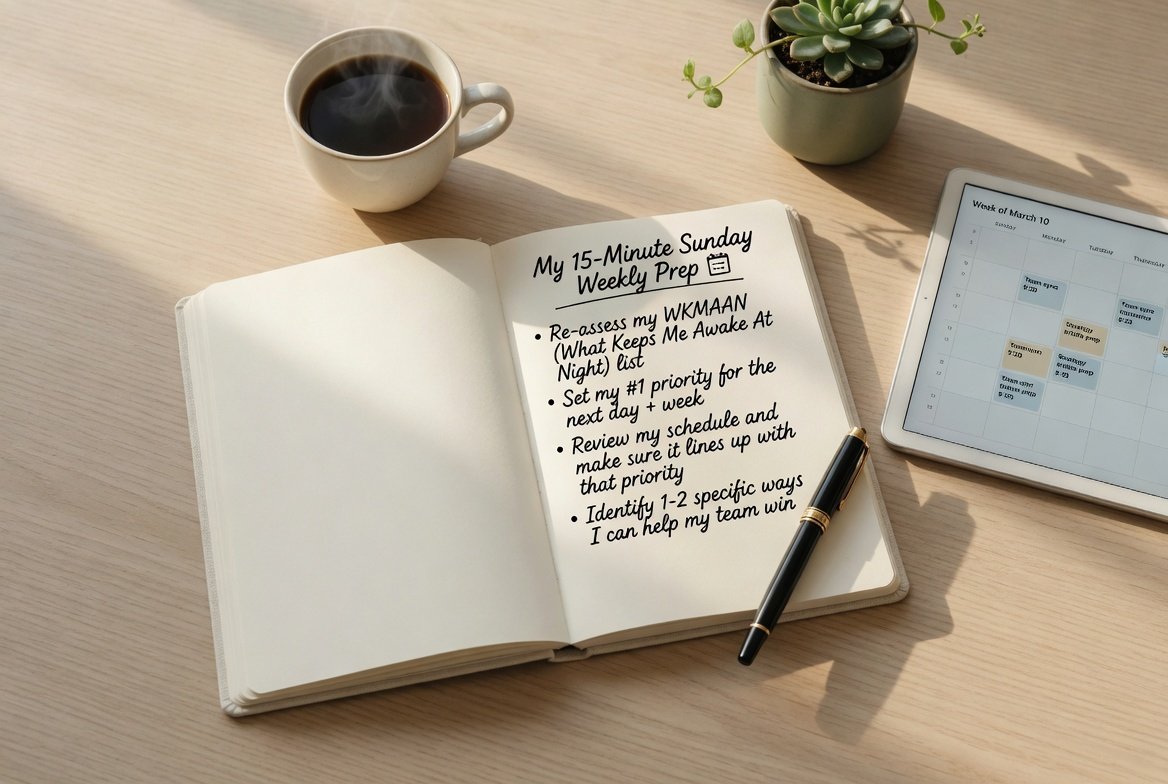 My 15-Minute Sunday
Weekly Prep
• Re-assess my WKMAAN
(What Keeps Me Awake At
Night) list
• Set my #1 priority for the
next day + week
• Review my schedule and
make sure it lines up with
that priority
• Identify 1-2 specific ways
I can help my team win
Week of March 10
Sunday
Monday
Tuesday